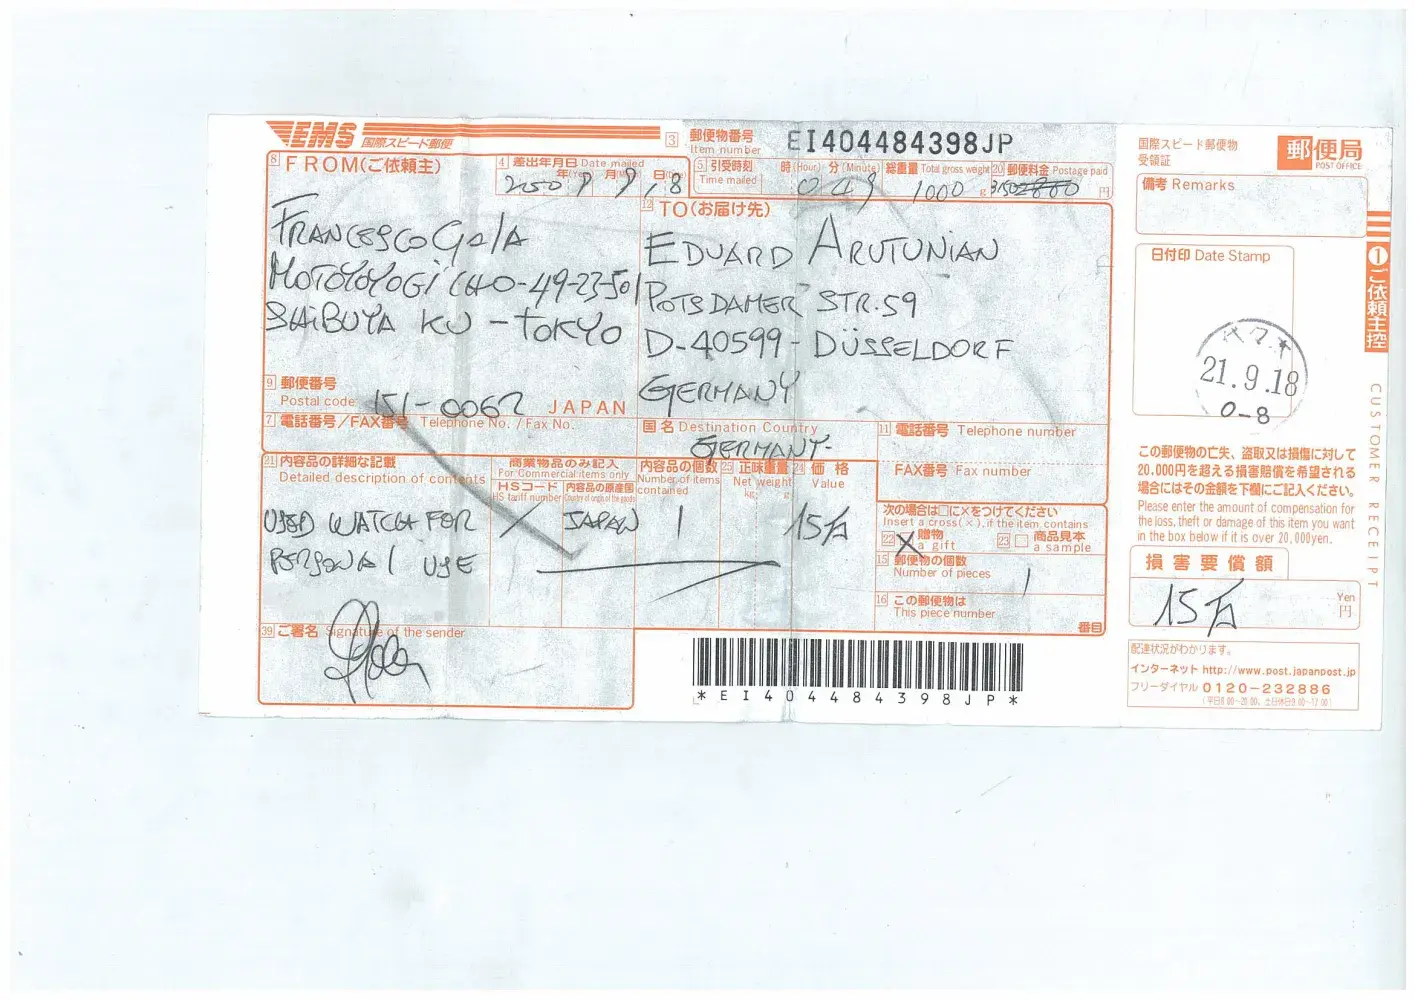 EMS 国際スピード郵便
3 郵便物番号 Item number EI404484398JP
8 FROM(ご依頼主)
4 差出年月日 Date mailed
年(Year) 月(M 日(Day)
5 引受時刻 Time mailed 時(Hour) 分(Minute)
総重量 Total gross weight 1000 g
20 郵便料金 Postage paid 円
FRANCESCO Gala
MOTOYOYOGI CHO-49-23-501
SHIBUYA KU - TOKYO
9 郵便番号 Postal code 151-0062 JAPAN
7 電話番号/FAX番号 Telephone No. / Fax No.
12 TO(お届け先)
EDUARD ARUTUNIAN
POTSDAMER STR.59
D-40599-DÜSSELDORF
GERMANY
国名 Destination Country
GERMANY-
11 電話番号 Telephone number
FAX番号 Fax number
21 内容品の詳細な記載
Detailed description of contents
商業物品のみ記入
For Commercial items only
HSコード
HS tariff number
内容品の原産国
Country of origin of the goods
内容品の個数
Number of items contained
23 正味重量
Net weight
kg g
24 価格
Value
USED WATCH FOR / JAPAN 1 15万
PERSONAL USE
次の場合は□に×をつけてください
Insert a cross(×), if the item contains
22 X 贈物 a gift
23 商品見本 a sample
15 郵便物の個数
Number of pieces 1
16 この郵便物は
This piece number
番目
39 ご署名 Signature of the sender
*EI404484398JP*
国際スピード郵便物
受領証
郵便局
POST OFFICE
備考 Remarks
日付印 Date Stamp
代々木
21.9.18
0-8
1 ご依頼主控
CUSTOMER RECEIPT
この郵便物の亡失、盗取又は損傷に対して
20,000円を超える損害賠償を希望される
場合にはその金額を下欄にご記入ください。
Please enter the amount of compensation for
the loss, theft or damage of this item you want
in the box below if it is over 20,000yen.
損害要償額
15万
Yen
円
配達状況がわかります。
インターネット http://www.post.japanpost.jp
フリーダイヤル 0120-232886